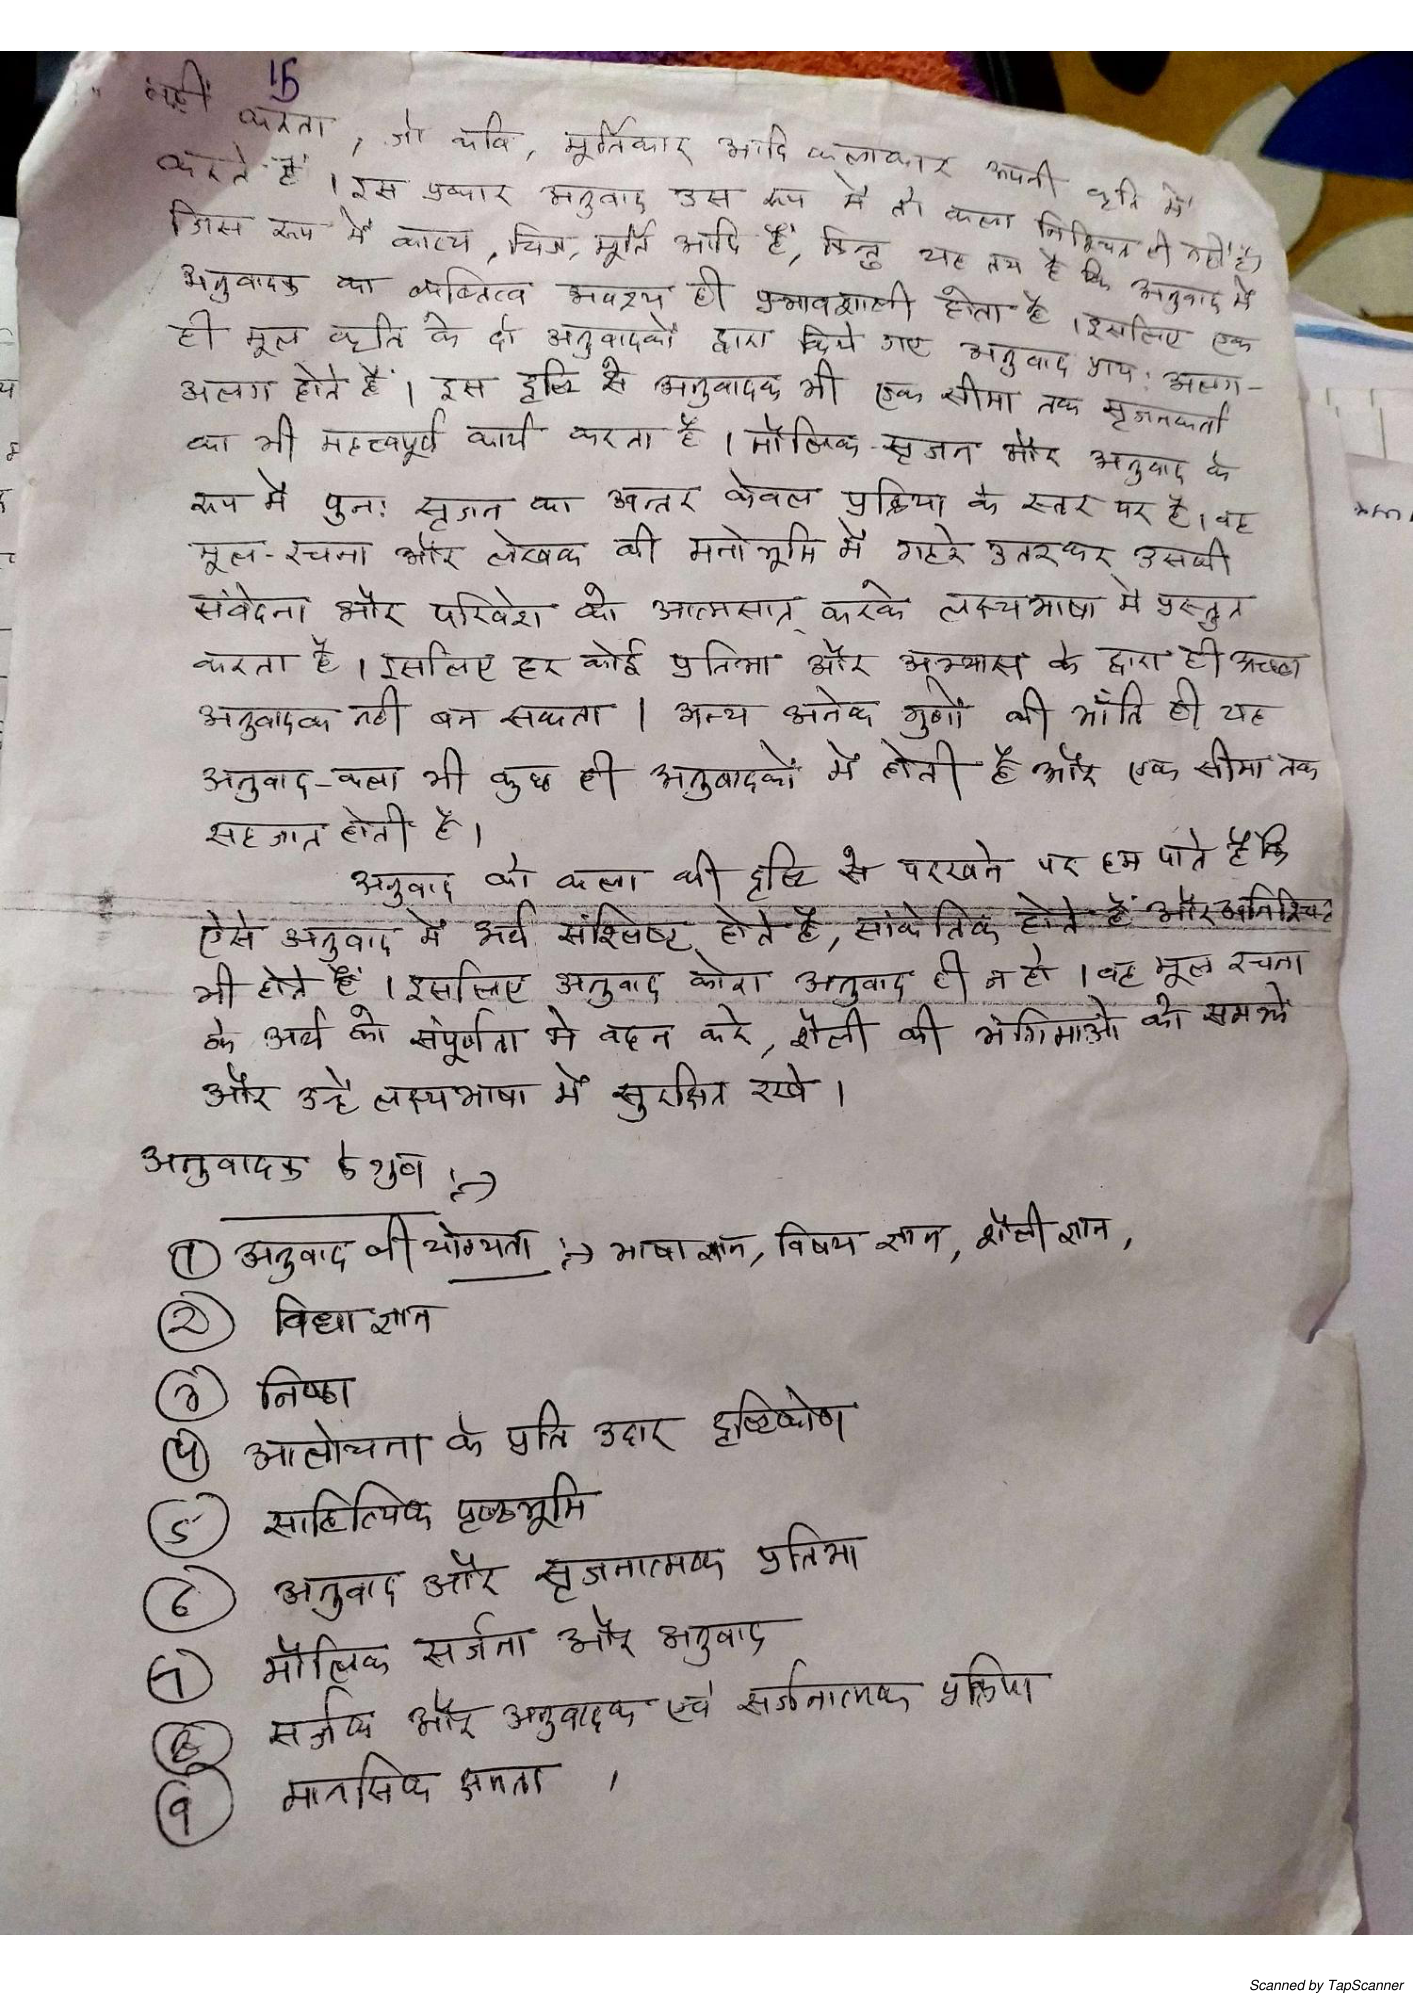 15
नहीं करता, जो कवि, मूर्तिकार आदि कलाकार अपनी कृति में
करते हैं । इस प्रकार अनुवाद उस रूप में तो कला निश्चित ही नहीं है,
जिस रूप में काव्य, चित्र, मूर्ति आदि हैं, किन्तु यह तय है कि अनुवाद में
अनुवादक का व्यक्तित्व अवश्य ही प्रभावशाली होता है । इसलिए एक
ही मूल कृति के दो अनुवादकों द्वारा किये गए अनुवाद प्रायः अलग-
अलग होते हैं । इस दृष्टि से अनुवादक भी एक सीमा तक सृजनकर्ता
का भी महत्वपूर्ण कार्य करता है । मौलिक-सृजन और अनुवाद के
रूप में पुनः सृजन का अन्तर केवल प्रक्रिया के स्तर पर है । वह
मूल-रचना और लेखक की मनोभूमि में गहरे उतरकर उसकी
संवेदना और परिवेश को आत्मसात् करके लक्ष्यभाषा में प्रस्तुत
करता है । इसलिए हर कोई प्रतिभा और अभ्यास के द्वारा ही अच्छा
अनुवादक नही बन सकता । अन्य अनेक गुणों की भाँति ही यह
अनुवाद-कला भी कुछ ही अनुवादकों में होती है और एक सीमा तक
सहजात होती है ।
अनुवाद को कला की दृष्टि से परखने पर हम पाते हैं कि
ऐसे अनुवाद में अर्थ संश्लिष्ट होते हैं, सांकेतिक होते हैं और अनिश्चित
भी होते हैं । इसलिए अनुवाद कोरा अनुवाद ही न हो । वह मूल रचना
के अर्थ को संपूर्णता मे वहन करे, शैली की भंगिमाओ को समझे
और उन्हे लक्ष्यभाषा में सुरक्षित रखे ।
अनुवादक के गुण :→
① अनुवाद की योग्यता :→ भाषा ज्ञान, विषय ज्ञान, शैली ज्ञान,
② विधा ज्ञान
③ निष्ठा
④ आलोचना के प्रति उदार दृष्टिकोण
⑤ साहित्यिक पृष्ठभूमि
⑥ अनुवाद और सृजनात्मक प्रतिभा
⑦ मौलिक सर्जना और अनुवाद
⑧ सर्जक और अनुवादक एवं सर्जनात्मक प्रक्रिया
⑨ मानसिक क्षमता ,
Scanned by TapScanner